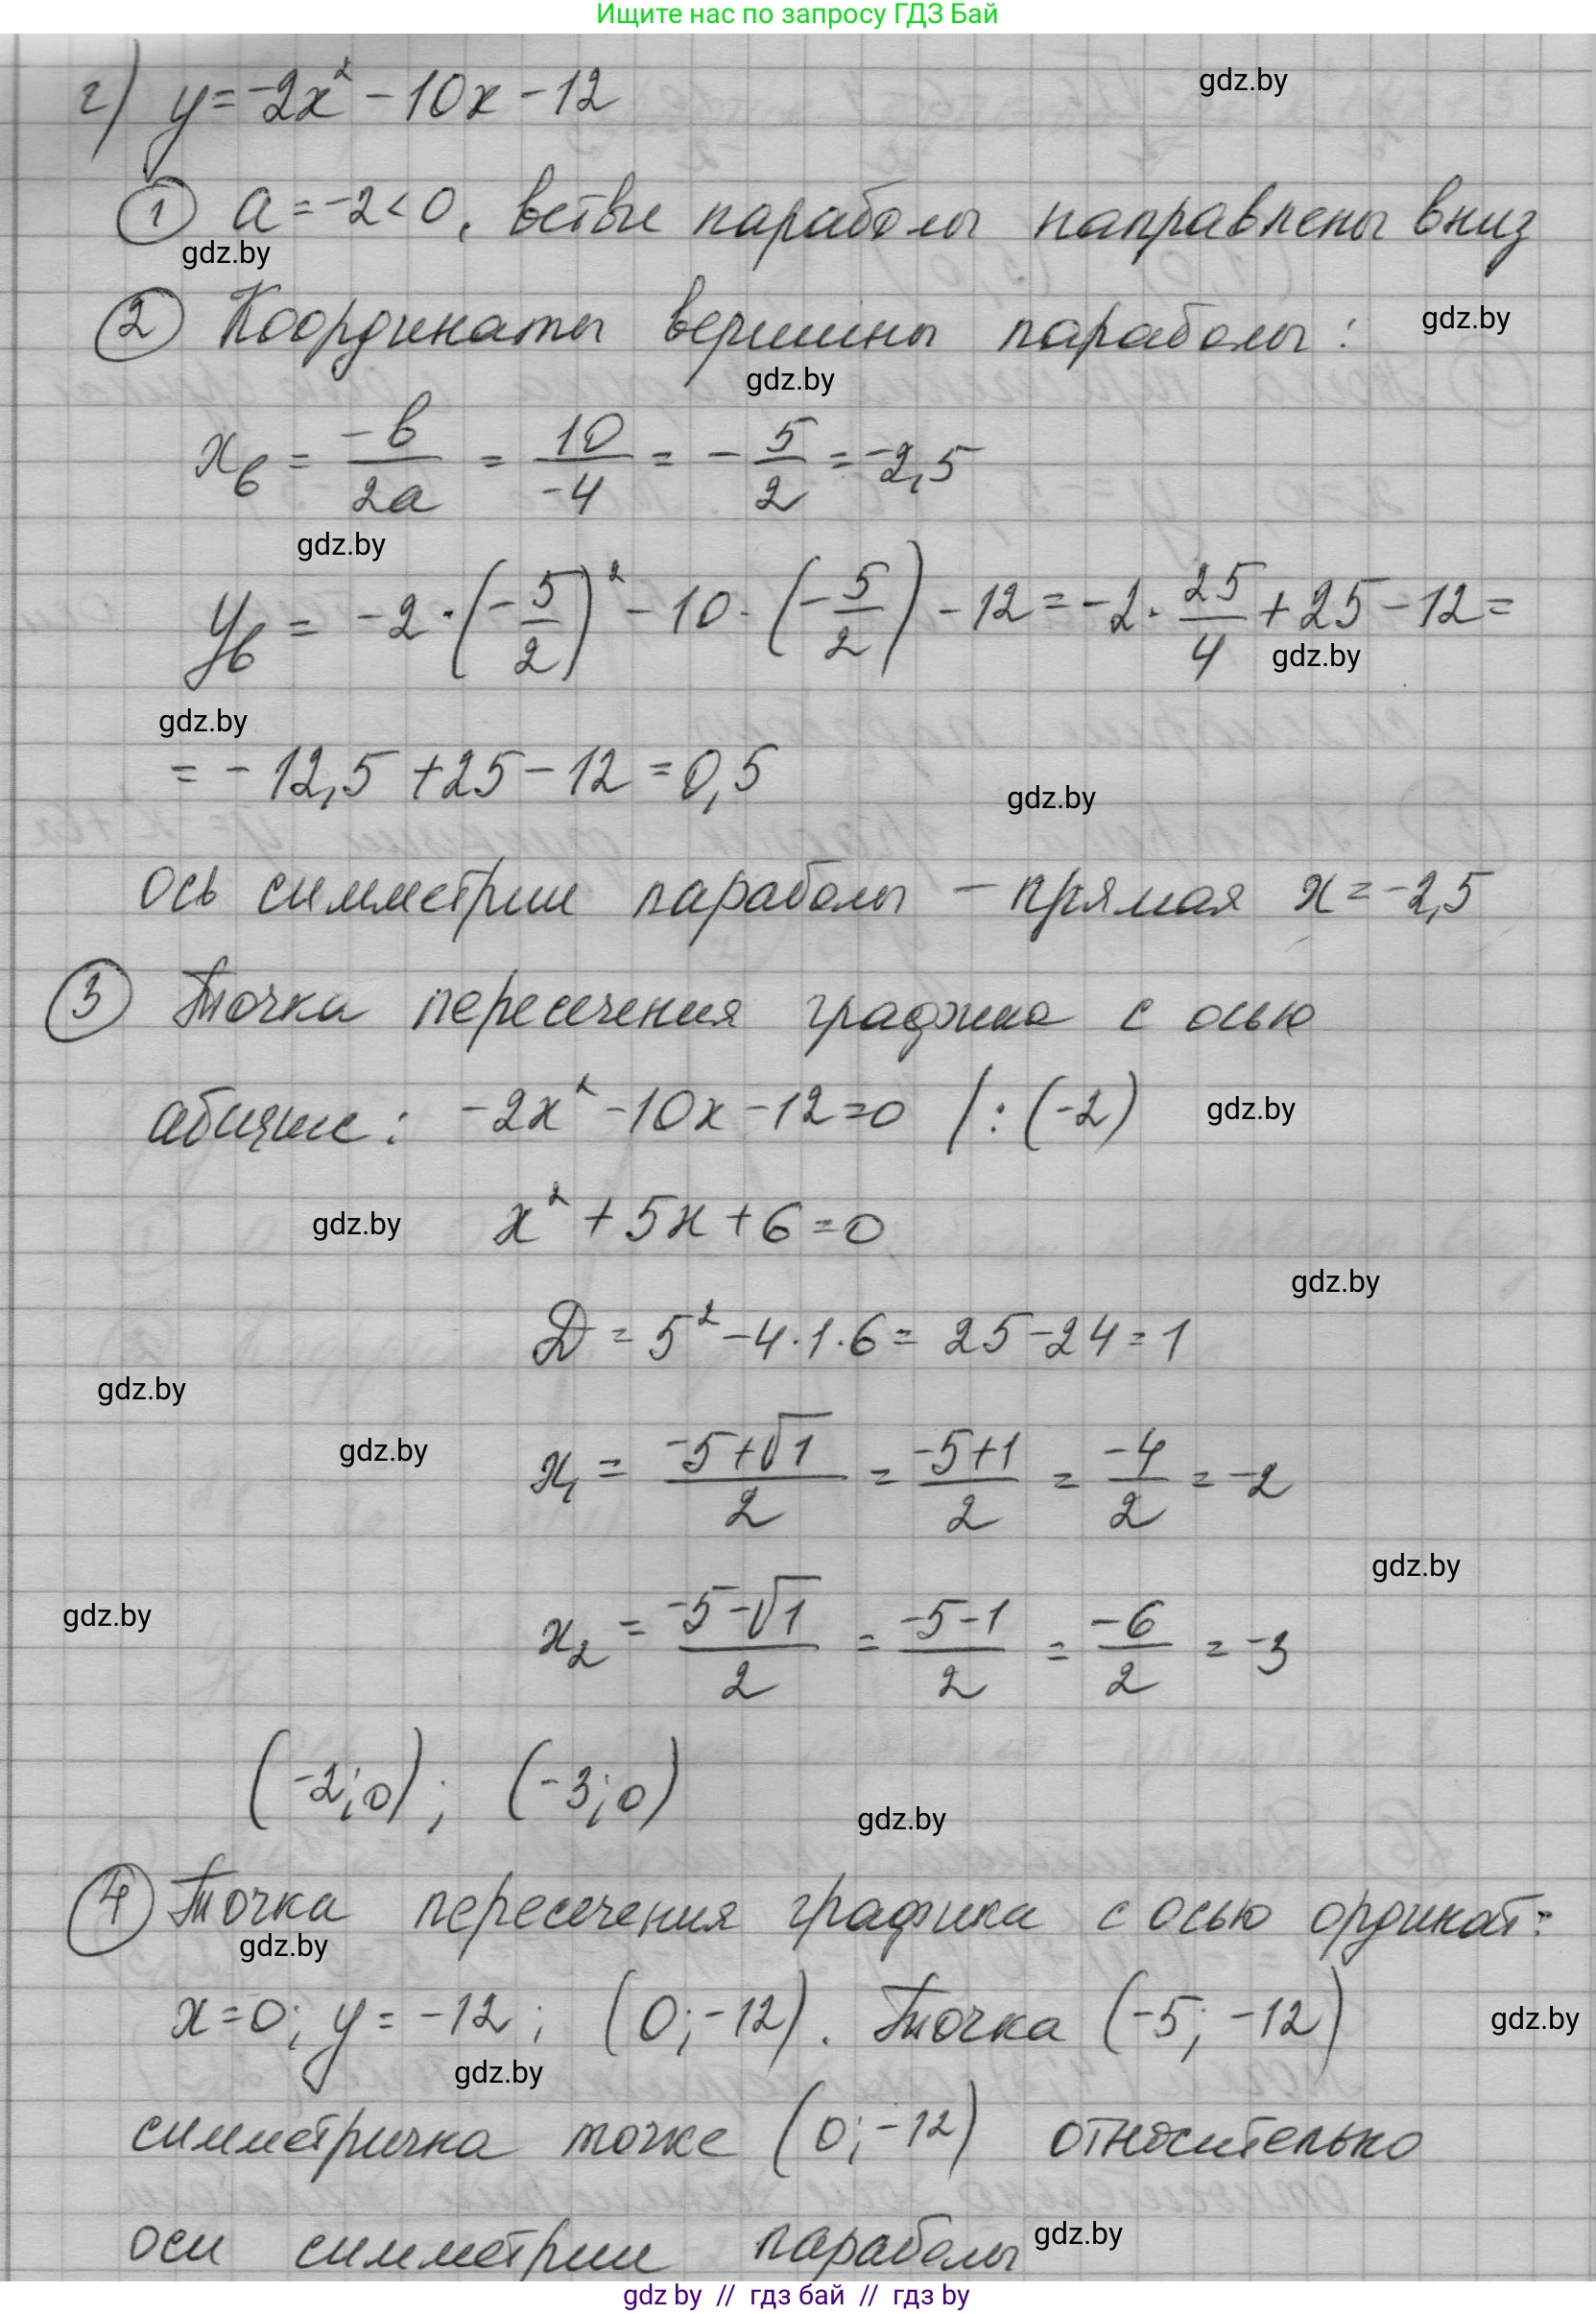 Ищите нас по запросу ГДЗ Бай
г) y = -2x² - 10x - 12
gdz.by
① a = -2 < 0, ветви параболы направлены вниз
gdz.by
② Координаты вершины параболы:
gdz.by
gdz.by
xв = -b/2a = 10/-4 = -5/2 = -2,5
gdz.by
yв = -2·(-5/2)² - 10·(-5/2) - 12 = -2·25/4 + 25 - 12 =
gdz.by
gdz.by
= -12,5 + 25 - 12 = 0,5
gdz.by
ось симметрии параболы – прямая x = -2,5
③ Точка пересечения графика с осью
абсцисс: -2x² - 10x - 12 = 0 /:(-2)
gdz.by
gdz.by
x² + 5x + 6 = 0
gdz.by
D = 5² - 4·1·6 = 25 - 24 = 1
gdz.by
gdz.by
x₁ = (-5+√1)/2 = (-5+1)/2 = -4/2 = -2
gdz.by
gdz.by
x₂ = (-5-√1)/2 = (-5-1)/2 = -6/2 = -3
(-2;0); (-3;0)
gdz.by
④ Точка пересечения графика с осью ординат:
gdz.by
x=0; y = -12; (0;-12). Точка (-5; -12)
gdz.by
gdz.by
симметрична точке (0;-12) относительно
оси симметрии параболы
gdz.by
gdz by // гдз бай // гдз by